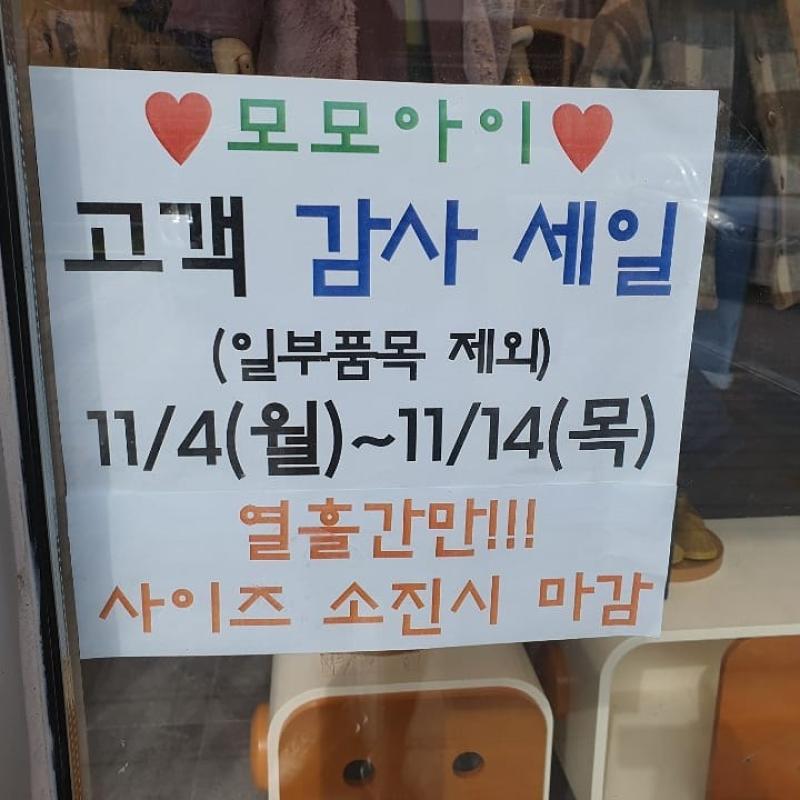 ♥모모아이♥
고객 감사 세일
(일부품목 제외)
11/4(월)~11/14(목)
열흘간만!!!
사이즈 소진시 마감